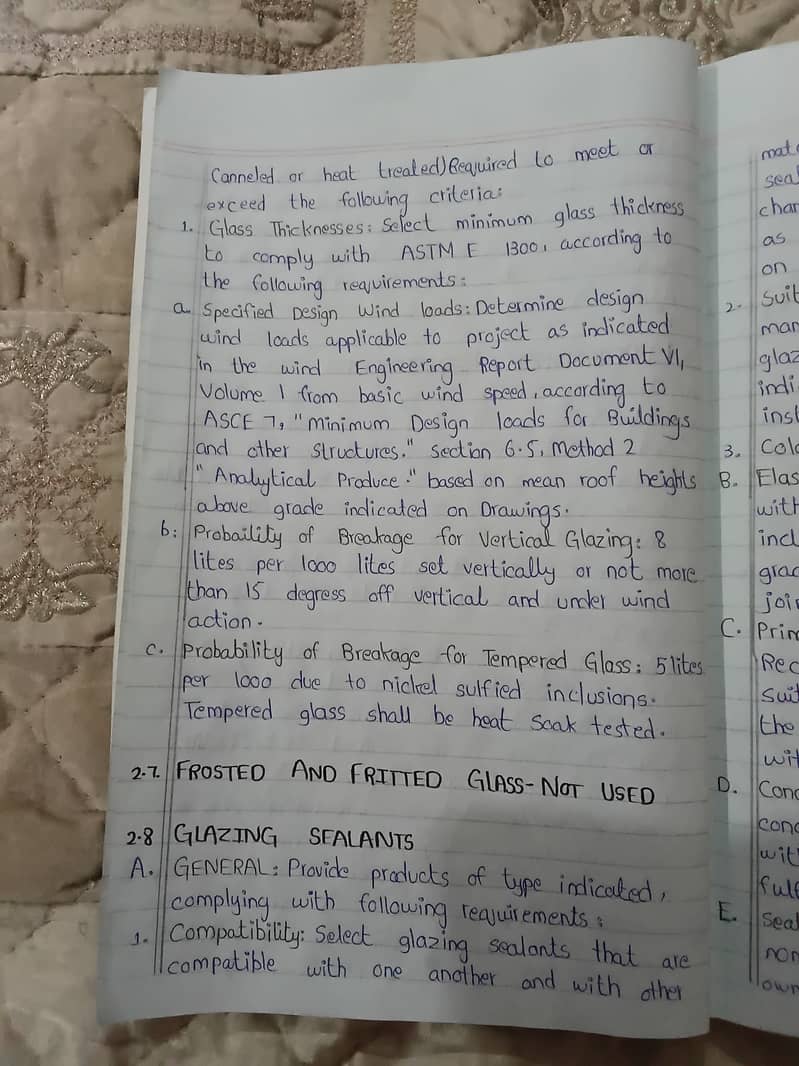 (anneled or heat treated) Reqjuired to meet or
exceed the following criteria:
1. Glass Thicknesses: Select minimum glass thickness
to comply with ASTM E 1300, according to
the following reqjuirements:
a. Specified Design Wind loads: Determine design
wind loads applicable to project as indicated
in the wind Engineering Report Document VI,
Volume 1 from basic wind speed, according to
ASCE 7, "Minimum Design loads for Buildings
and other Structures." Section 6.5, Method 2
"Analytical Produce." based on mean roof heights
above grade indicated on Drawings.
b: Probaility of Breakage for Vertical Glazing: 8
lites per 1000 lites set vertically or not more
than 15 degress off vertical and under wind
action.
c. Probability of Breakage for Tempered Glass: 5 lites
per 1000 due to nickel sulfied inclusions.
Tempered glass shall be heat Soak tested.
2.7. FROSTED AND FRITTED GLASS-NOT USED
2.8 GLAZING SEALANTS
A. GENERAL: Provide products of type indicated,
complying with following reqjuirements:
1. Compatibility: Select glazing sealants that are
compatible with one another and with other
mat
seal
char
as
on
2. Suit
man
glaz
indi
inst
3. Colo
B. Elas
with
incl
grad
join
C. Prim
Rec
Suit
the
wit
D. Conc
conc
wit
fulf
E. Seal
non
own